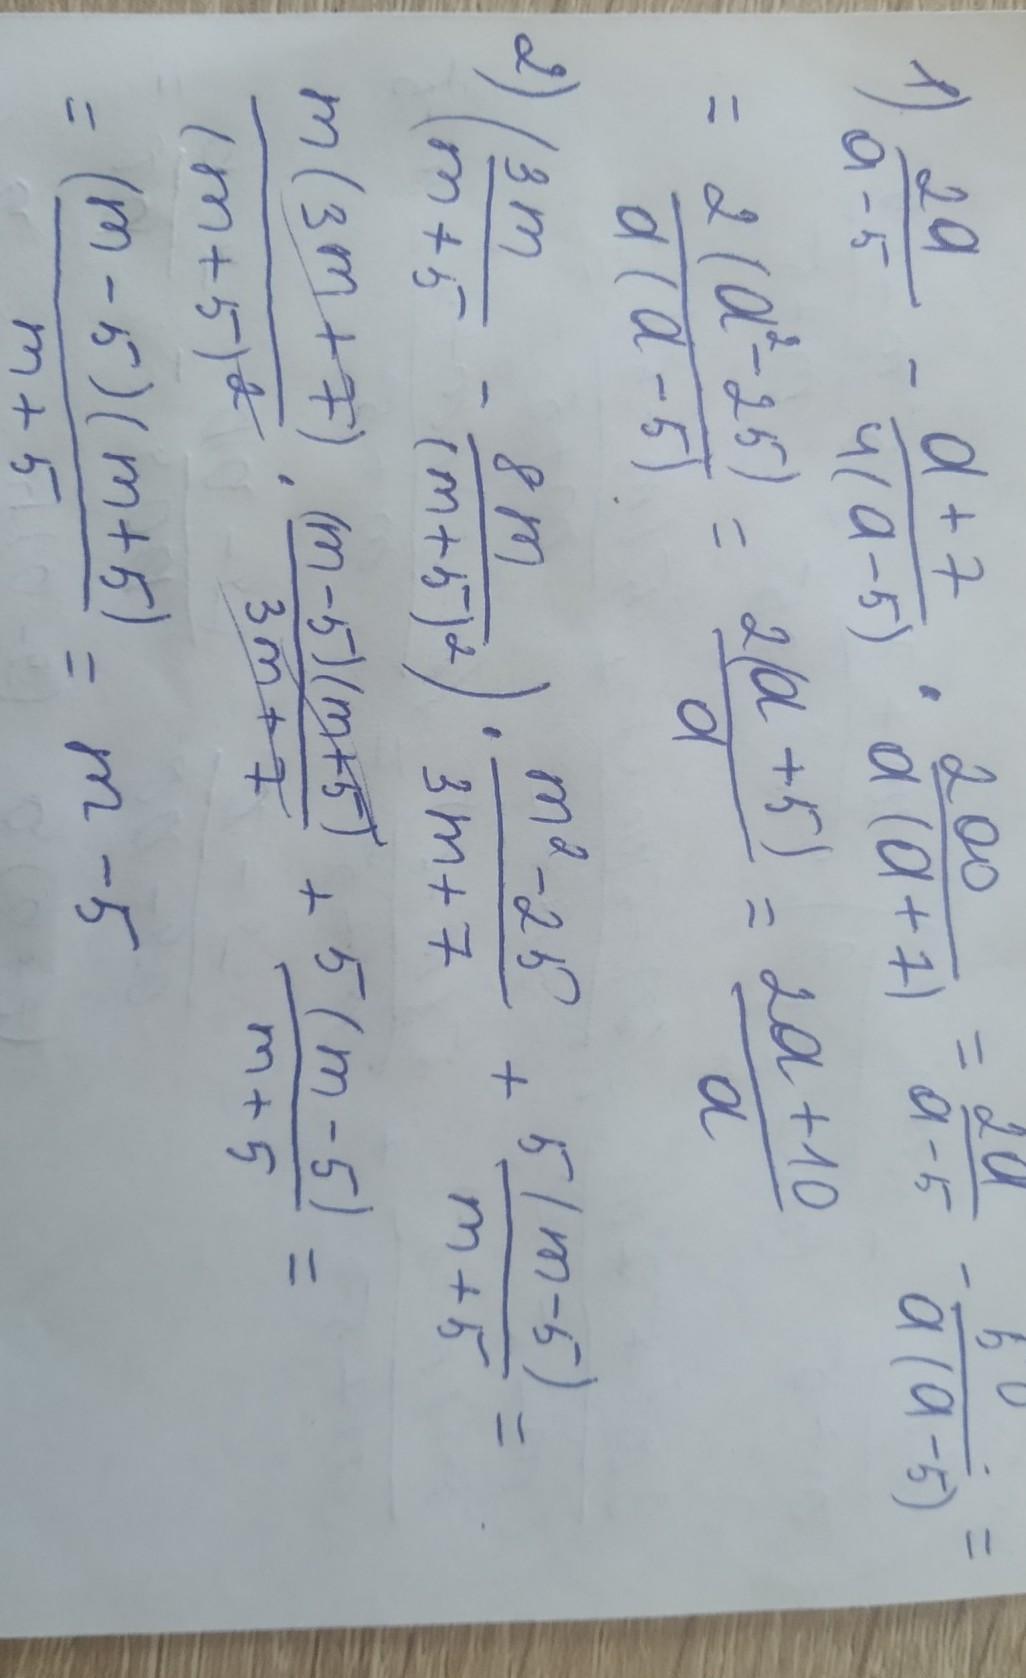 1) 2a/(a-5) - (a+7)/(4(a-5)) · 200/(a(a+7)) = 2a/(a-5) - 50/(a(a-5)) =
= 2(a²-25)/(a(a-5)) = 2(a+5)/a = (2a+10)/a
2) (3m/(m+5) - 8m/(m+5)²) · (m²-25)/(3m+7) + 5(m-5)/(m+5) =
m(3m+7)/(m+5)² · (m-5)(m+5)/(3m+7) + 5(m-5)/(m+5) =
= (m-5)(m+5)/(m+5) = m-5